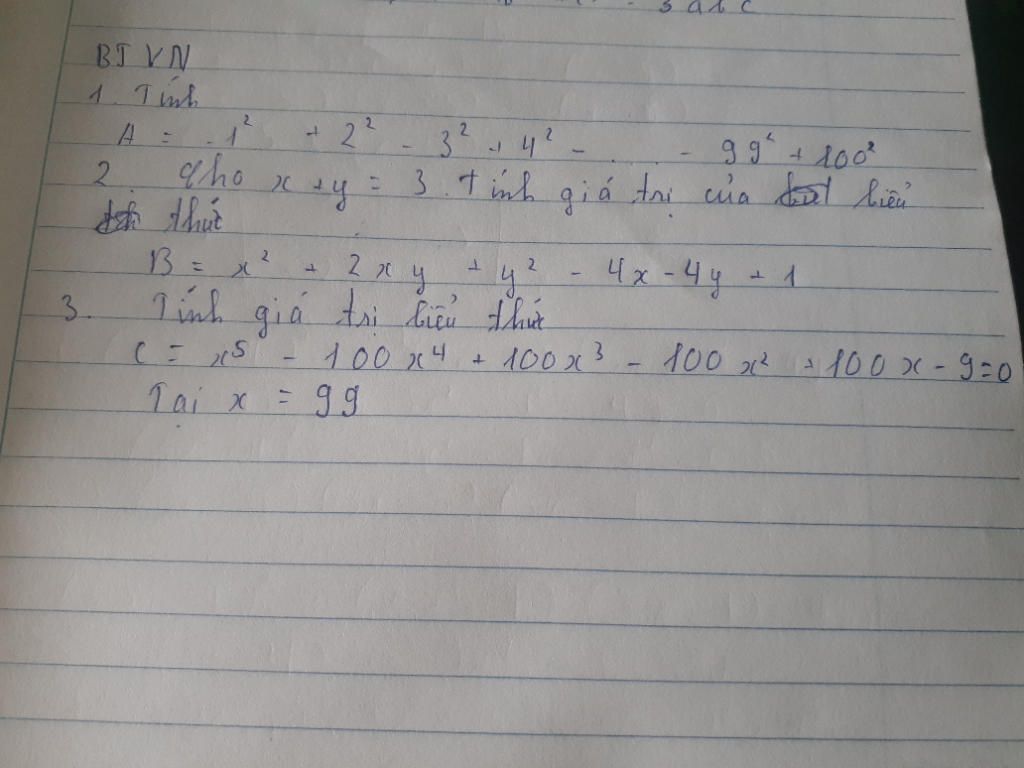 3 a b c
BT VN
1. Tính
A = - 1² + 2² - 3² + 4² - ..... - 99² + 100²
2. Cho x + y = 3. Tính giá trị của biểu
thức
B = x² + 2xy + y² - 4x - 4y + 1
3. Tính giá trị biểu thức
C = x⁵ - 100x⁴ + 100x³ - 100x² + 100x - 9 = 0
Tại x = 99